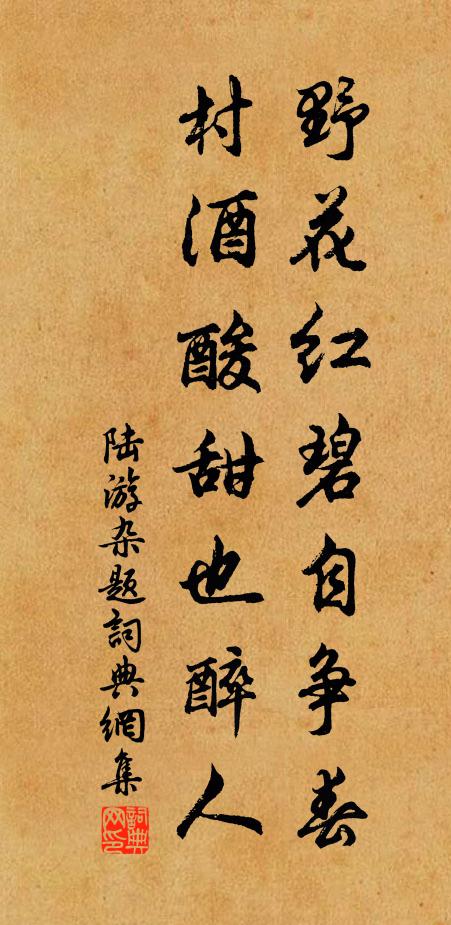 野花红碧自争春
村酒酸甜也醉人
陆游杂题詞典網集
詞典网印